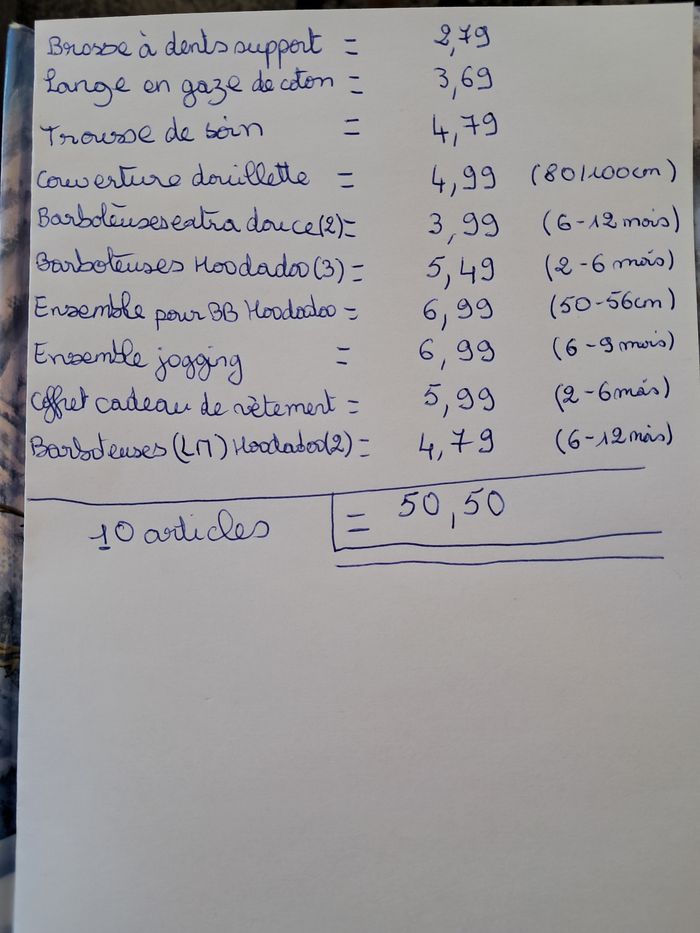 Brosse à dents support = 2,79
Lange en gaze de coton = 3,69
Trousse de soin = 4,79
Couverture douillette = 4,99 (80/100cm)
Barboteuses extra douce (2) = 3,99 (6-12 mois)
Barboteuses Hoodadoo (3) = 5,49 (2-6 mois)
Ensemble pour BB Hoodadoo = 6,99 (50-56cm)
Ensemble jogging = 6,99 (6-9 mois)
Coffret cadeau de vêtement = 5,99 (2-6 mois)
Barboteuses (LM) Hoodadoo (2) = 4,79 (6-12 mois)
10 articles = 50,50